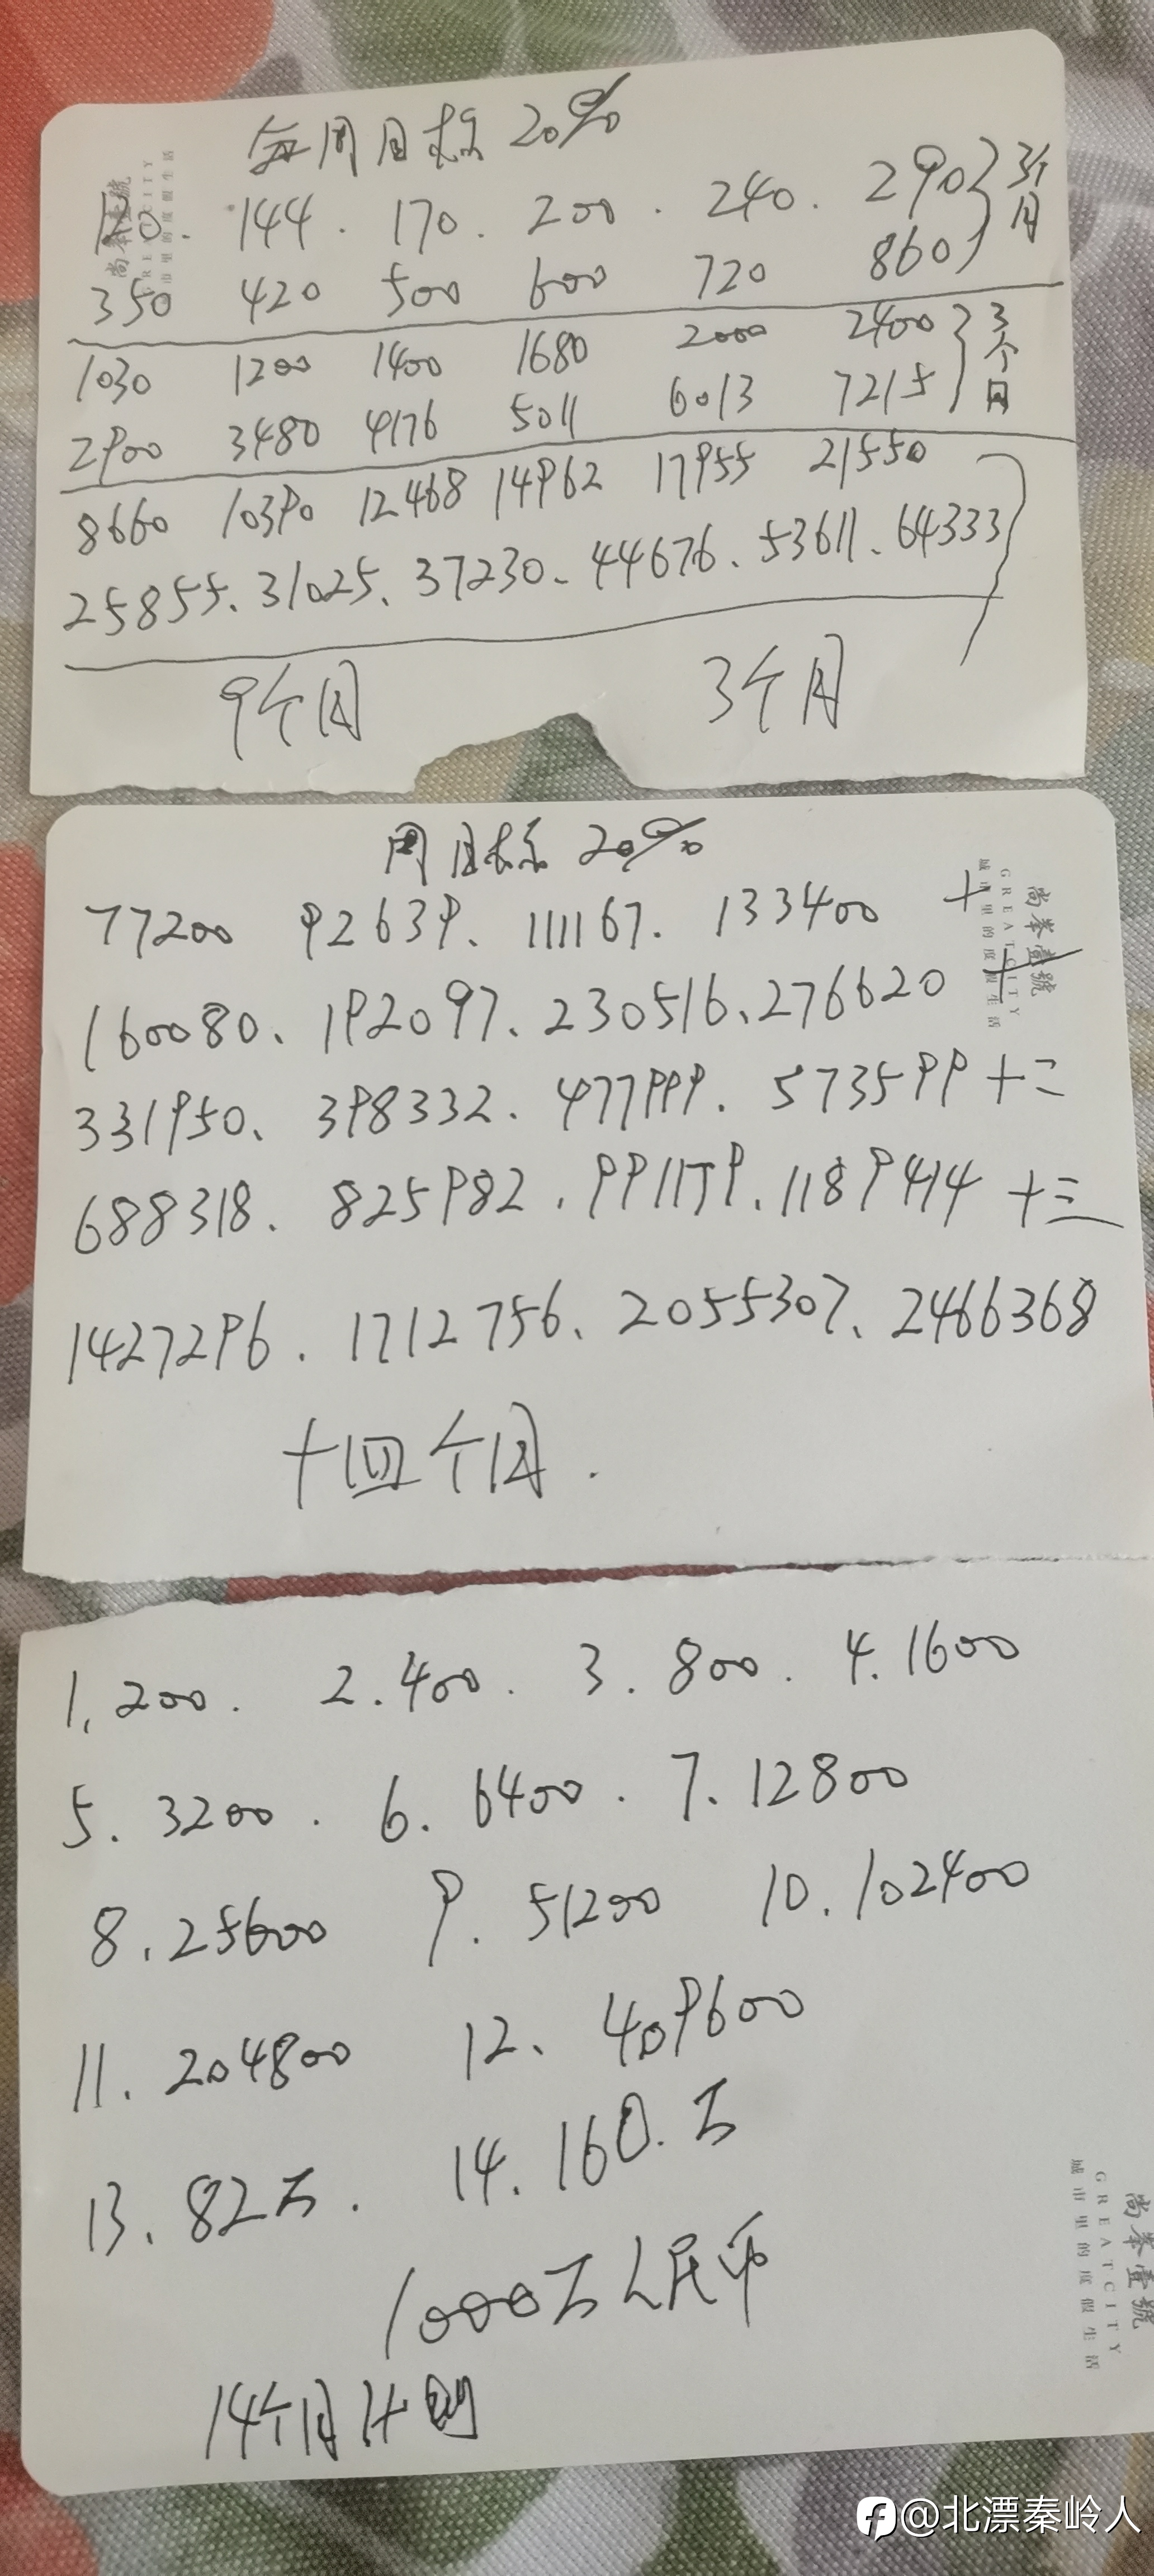 每周目标 20%
120. 144. 170. 200. 240. 290 } 3个月
350 420 500 600 720 860
1030 1200 1400 1680 2000 2400 } 3个月
2900 3480 4176 5011 6013 7215
8660 10390 12468 14962 17955 21550
25855、31025、37230、44676、53611、64333
9个月 3个月
尚峯壹號
GREATCITY
城市里的度假生活
周目标 20%
77200 92639、111167. 133400 十
160080、192097、230516、276620 十一
331950、398332、477999、573599 十二
688318、825982、991179、1189414 十三
1427296、1712756、2055307、2466368
十四个月.
尚峯壹號
GREATCITY
城市里的度假生活
1.200. 2.400. 3.800. 4.1600
5.3200. 6.6400. 7.12800
8.25600 9.51200 10.102400
11.204800 12、409600
13、82万. 14.160.万
1000万人民币
14个月计划
尚峯壹號
GREATCITY
城市里的度假生活
@北漂秦岭人